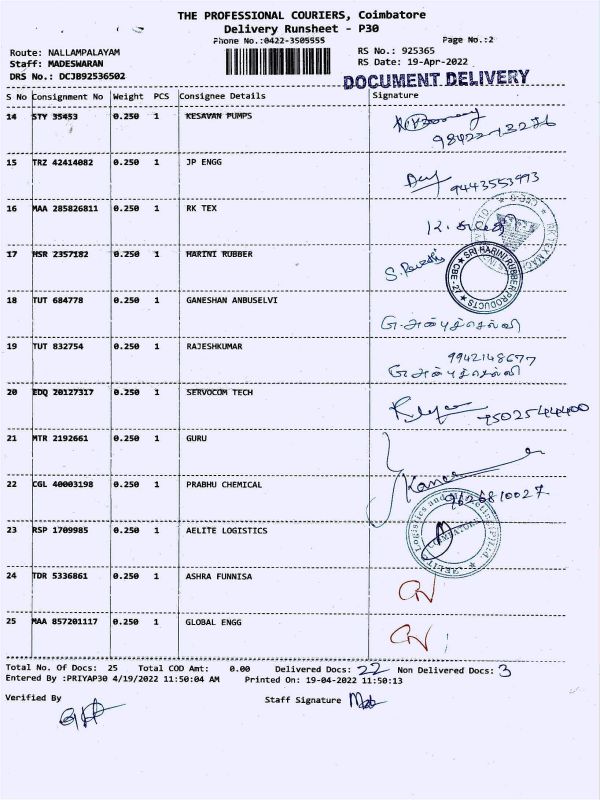 THE PROFESSIONAL COURIERS, Coimbatore
Delivery Runsheet - P30
Phone No.:0422-3505555 Page No.:2
Route: NALLAMPALAYAM RS No.: 925365
Staff: MADESWARAN RS Date: 19-Apr-2022
DRS No.: DCJB92536502 DOCUMENT DELIVERY
S No Consignment No Weight PCS Consignee Details Signature
14 STY 35453 0.250 1 KESAVAN PUMPS
15 TRZ 42414082 0.250 1 JP ENGG 9443553993
16 MAA 285826811 0.250 1 RK TEX
17 HSR 2357182 0.250 1 HARINI RUBBER
SRI HARINI RUBBER PRODUCTS CBE-27
18 TUT 684778 0.250 1 GANESHAN ANBUSELVI
19 TUT 832754 0.250 1 RAJESHKUMAR 9942148677
20 EDQ 20127317 0.250 1 SERVOCOM TECH 9502544400
21 MTR 2192661 0.250 1 GURU
22 CGL 40003198 0.250 1 PRABHU CHEMICAL 9626810027
23 RSP 1709985 0.250 1 AELITE LOGISTICS
24 TDR 5336861 0.250 1 ASHRA FUNNISA
25 MAA 857201117 0.250 1 GLOBAL ENGG
Total No. Of Docs: 25 Total COD Amt: 0.00 Delivered Docs: 22 Non Delivered Docs: 3
Entered By :PRIYAP30 4/19/2022 11:50:04 AM Printed On: 19-04-2022 11:50:13
Verified By Staff Signature